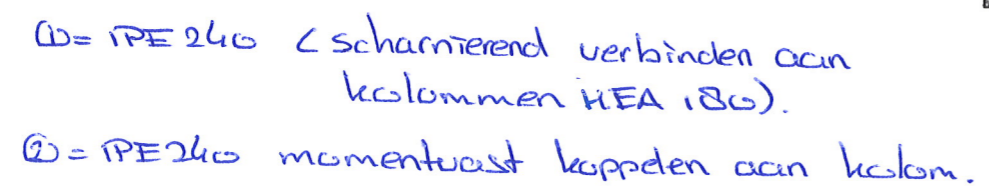 ① = IPE 240 (scharnierend verbinden aan
kolommen HEA 180).
② = IPE 240 momentvast koppelen aan kolom.